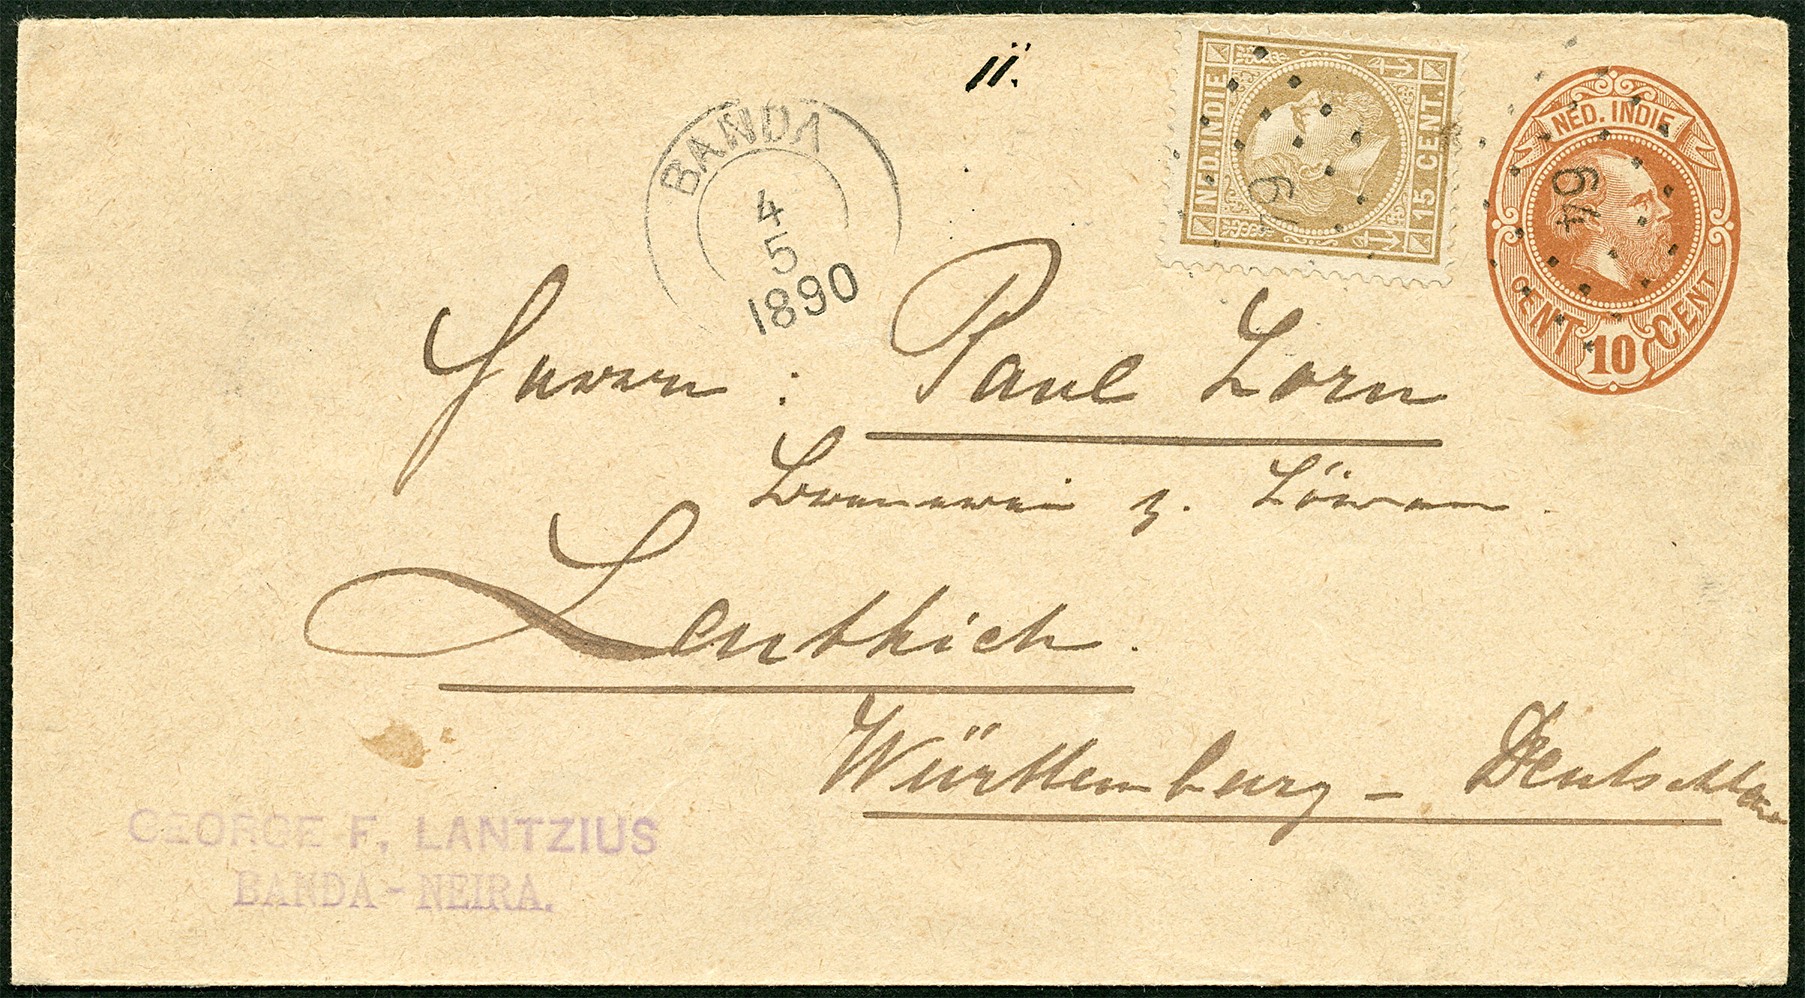 ii.
BANDA
4
5
1890
NED. INDIE
15 CENT.
NED. INDIE
CENT 10 CENT
64
64
Herrn : Paul Zorn
Brauerei z. Löwen.
Leutkich.
Württemburg – Deutschland
GEORGE F. LANTZIUS
BANDA - NEIRA.